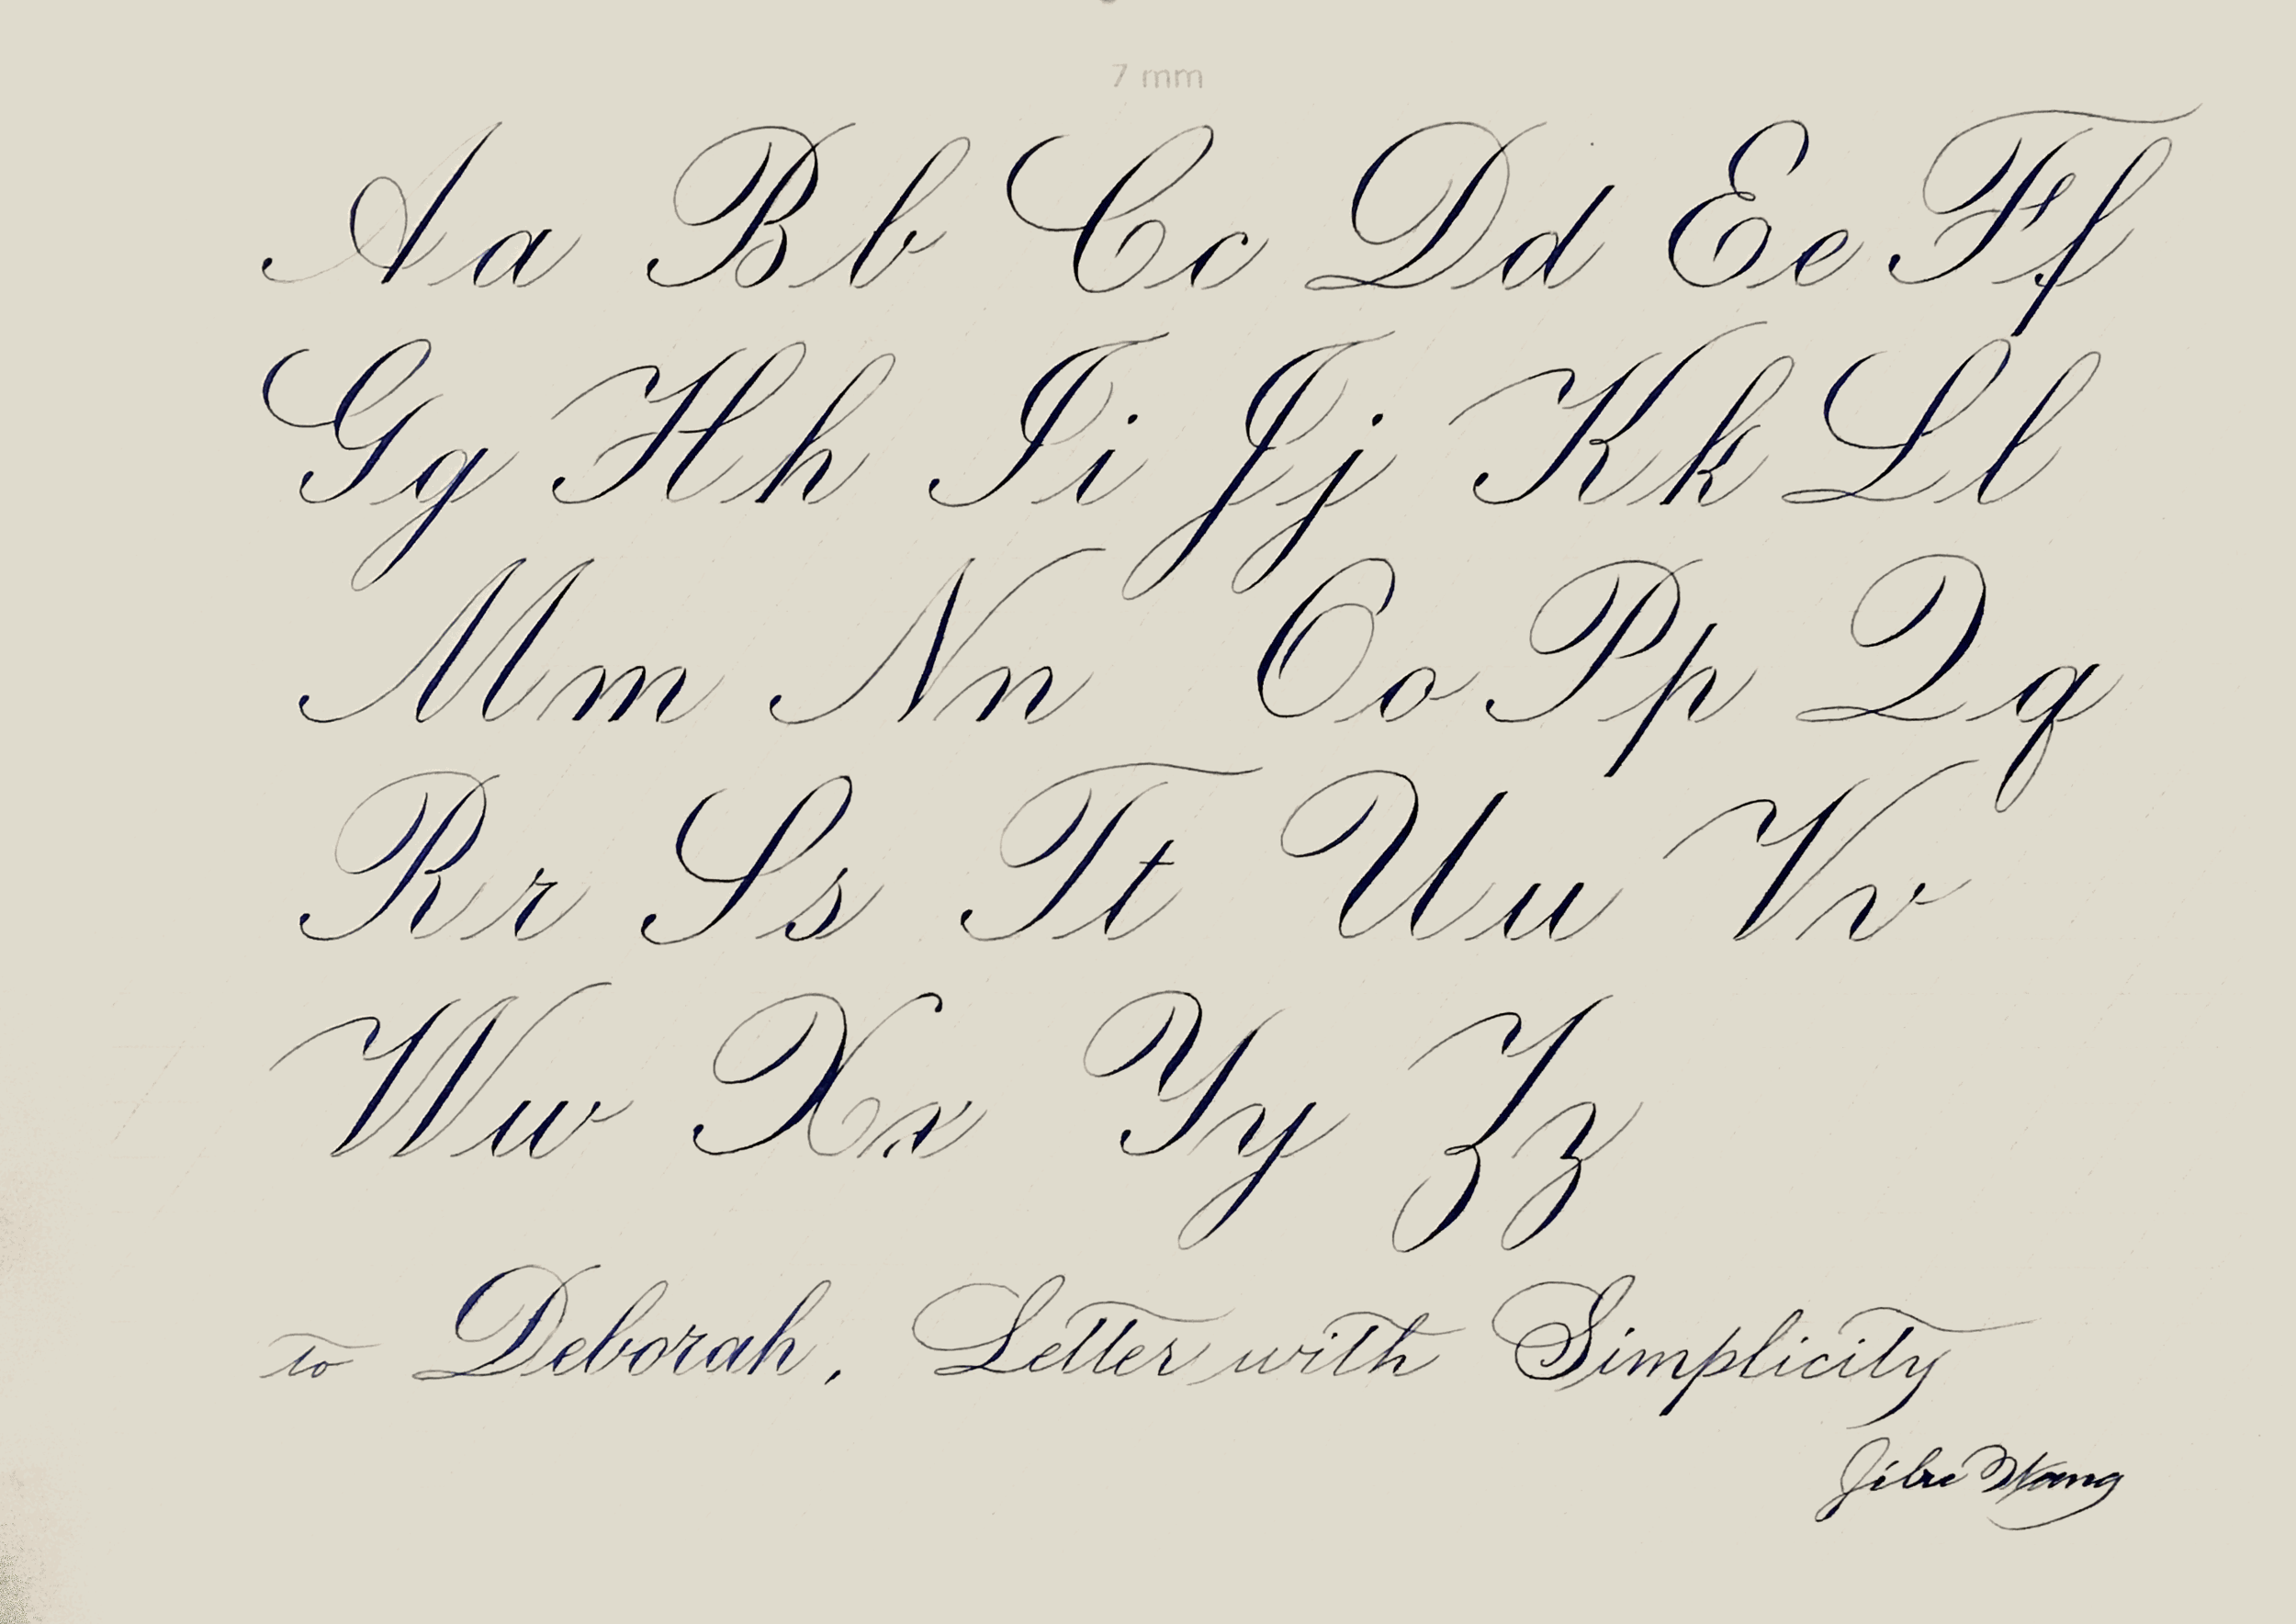 7 mm
Aa Bb Cc Dd Ee Ff
Gg Hh Ii Jj Kk Ll
Mm Nn Oo Pp Qq
Rr Ss Tt Uu Vv
Ww Xx Yy Zz
to Deborah, Letter with Simplicity
Wang